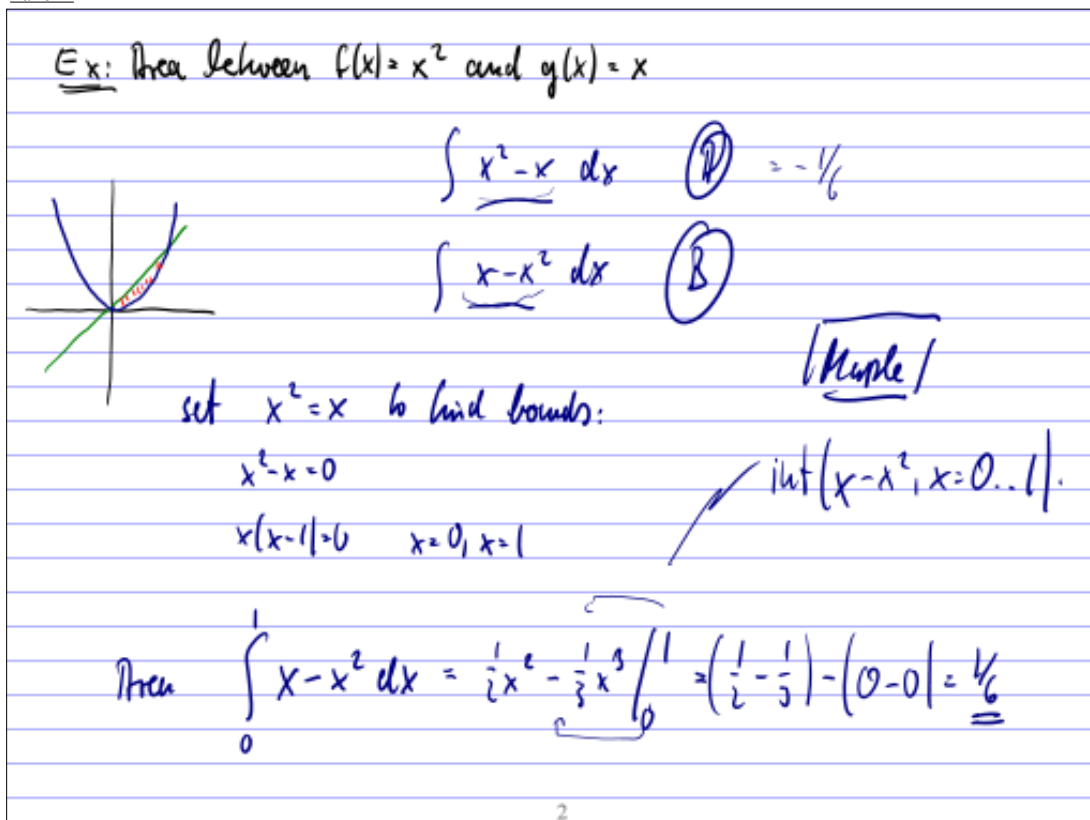 Ex: Area between f(x) = x² and g(x) = x
∫ x² - x dx Ⓐ = -1/6
∫ x - x² dx Ⓑ
Maple
set x² = x to find bounds:
x² - x = 0
int(x - x², x = 0..1).
x(x-1) = 0 x = 0, x = 1
Area ∫₀¹ x - x² dx = ½x² - ⅓x³ |₀¹ = (½ - ⅓) - (0 - 0) = 1/6
2